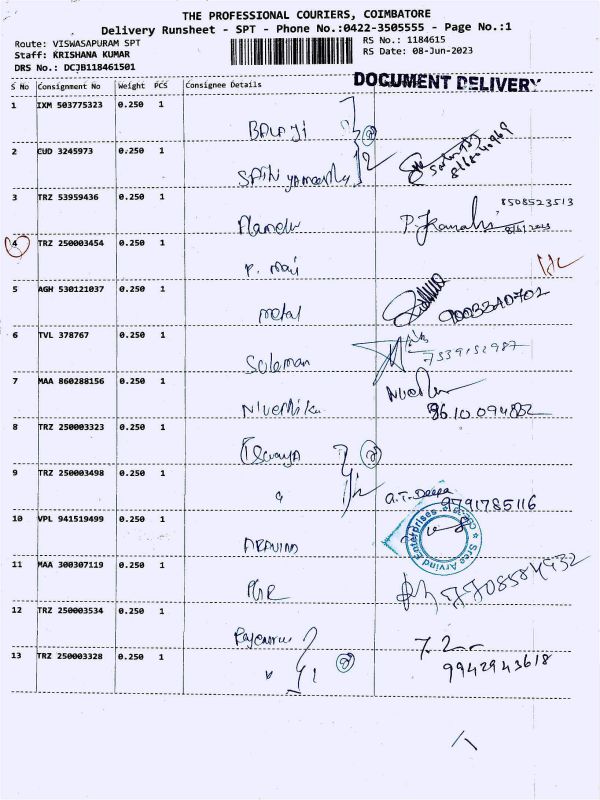 THE PROFESSIONAL COURIERS, COIMBATORE
Delivery Runsheet - SPT - Phone No.:0422-3505555 - Page No.:1
Route: VISWASAPURAM SPT
Staff: KRISHANA KUMAR
DRS No.: DCJB118461501
RS No.: 1184615
RS Date: 08-Jun-2023
DOCUMENT DELIVERY
S No Consignment No Weight PCS Consignee Details
1 IXM 503775323 0.250 1
BALAJI
2 CUD 3245973 0.250 1
3 TRZ 53959436 0.250 1
8508523513
4 TRZ 250003454 0.250 1
P. mani
5 AGH 530121037 0.250 1
metal
6 TVL 378767 0.250 1
Soleman
7539152987
7 MAA 860288156 0.250 1
Nivethika
8610094882
8 TRZ 250003323 0.250 1
9 TRZ 250003498 0.250 1
A.T. Deepa
9791785116
10 VPL 941519499 0.250 1
ARAVIND
Sree Arvind Enterprises
11 MAA 300307119 0.250 1
12 TRZ 250003534 0.250 1
13 TRZ 250003328 0.250 1
9942943618